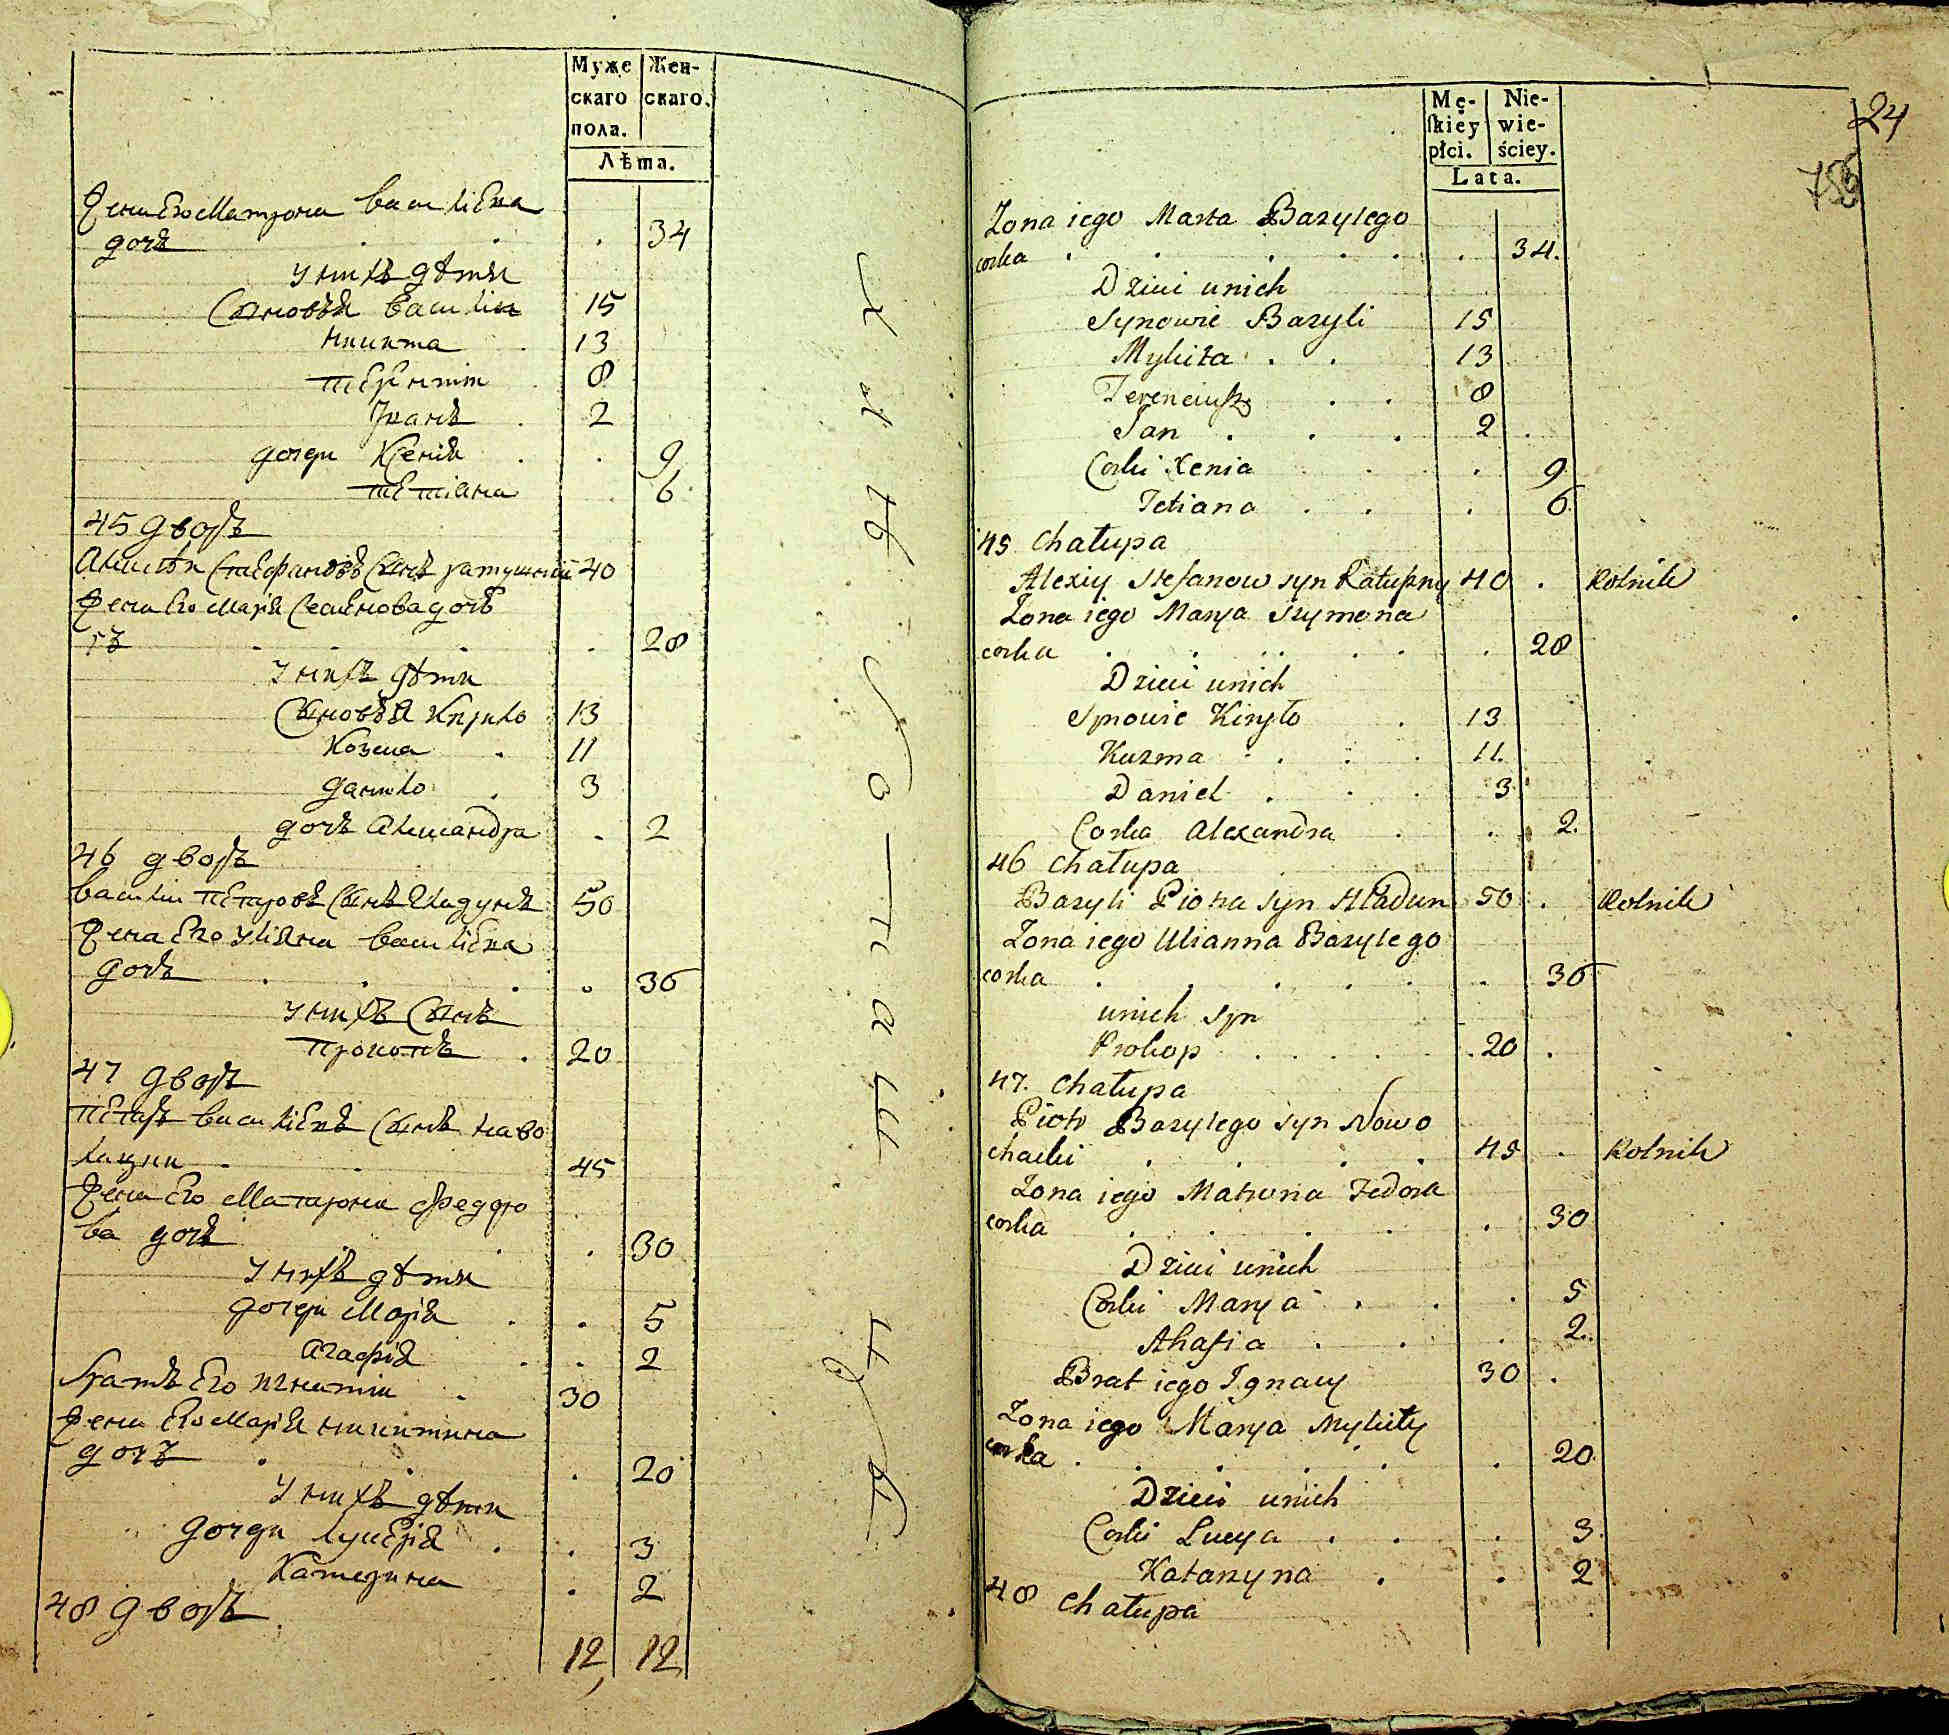 Муже
скаго
пола.
Жен-
скаго.
Лѣта.
Жена Его Матрона Василіева
дочь . . . 34
У нихъ дѣти
Сыновья Василій 15
Никита . 13
Терентій . 8
Иванъ . 2
дочери Ксенія . . 9
Тетіана 6
45 дворъ
Алексѣй Стефановъ Сынъ ратушный 40
Жена Его Марія Семенова дочь
. . . 28
У нихъ дѣти
Сыновья Кирило 13
Козма . 11
Данило . 3
дочь Александра . 2
46 дворъ
Василій Петровъ Сынъ Гладунъ 50
Жена Его Уліяна Василіева
дочь . . . . 36
У нихъ Сынъ
Прокопъ . 20
47 дворъ
Петръ Василіевъ Сынъ Наво
лацки . . 45
Жена Его Матрона Феддо
ва дочь . . . 30
У нихъ дѣти
дочери Марія . . 5
Агафія . . 2
Братъ Его Игнатій . 30
Жена Его Марія Никитина
дочь . . . 20
У нихъ дѣти
дочери Лукерія . . 3
Катерина . 2
48 дворъ
12, 12
Mę-
ſkiey
płci.
Nie-
wie-
ściey.
Lata.
24
Zona iego Marta Bazylego
corka . . . . . 34.
Dzieci unich
Synowie Bazyli 15
Mykita . . 13
Terenciusz . . 8
Jan . . . 2 .
Corki Xenia . . . 9
Tetiana . . . 6
45 Chałupa
Alexiy Stefanow syn Ratuszny 40 . Rolnik
Zona iego Marya Szymona
corka . . . . . . 28
Dzieci unich
Synowie Kiryło . 13
Kuzma . . . 11.
Daniel . . . 3
Corka Alexandra . . 2.
46 Chałupa
Bazyli Piotra syn Hładun 50 . Rolnik
Zona iego Ulianna Bazylego
corka . . . . . 36
unich syn
Prokop . . . . .20 .
47. Chałupa
Piotr Bazylego syn Nowo
. . . . 45 . Rolnik
Zona iego Matrona Fedora
corka . . . . . 30
Dzieci unich
Corki Marya . . . 5
Ahafia . . . 2.
Brat iego Ignacy 30 .
Zona iego Marya Mykity
corka . . . . . 20
Dzieci unich
Corki Lucya . . . 3.
Katarzyna . . 2
48 Chałupa